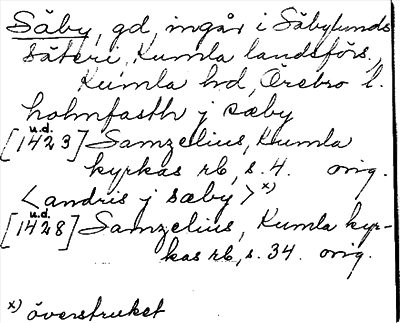 Säby, gd, ingår i Säbylunds
säteri, Kumla landsförs.,
Kumla hd, Örebro l.
holmfasth j sæby
[u.d. 1423] Samzelius, Kumla
kyrkas rb, s. 4. orig.
<andris j sæby> x)
[u.d. 1428] Samzelius, Kumla kyr-
kas rb, s. 34. orig.
x) överstruket